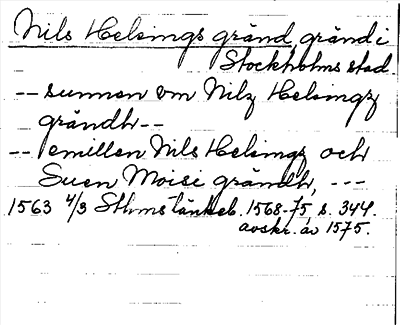 Nils Helsings gränd, gränd i
Stockholms stad.
-- sunnen om Nilz Helsingz
grändh --
-- emillen Nils Helsingz och
Suen Moisi grändh, ---
1563 4/3 Sthms tänkeb. 1568-75 s. 344.
avskr. av 1575.